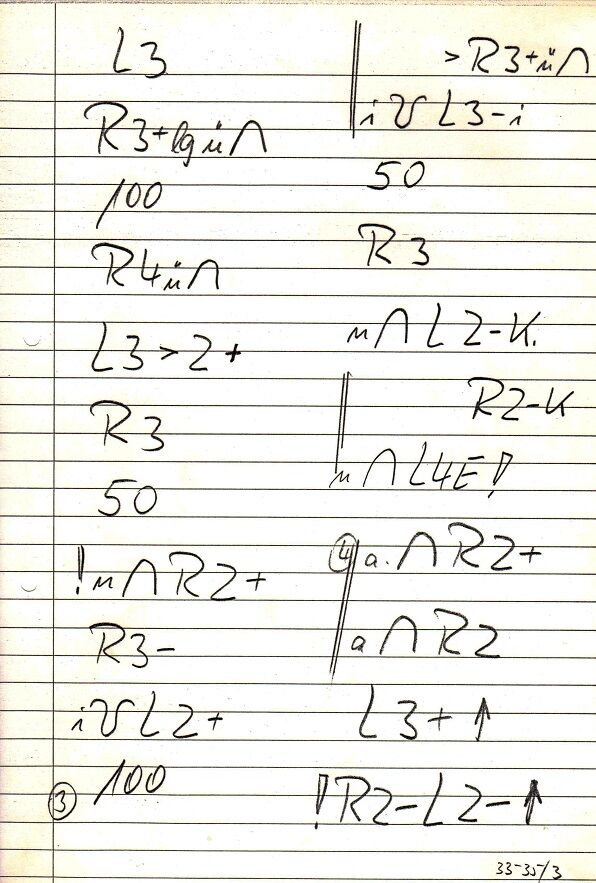 L3
R3+lg ü∩
100
R4ü∩
L3>2+
R3
50
!m∩R2+
R3-
i V L2+
100
3
>R3+ü∩
i V L3-i
50
R3
m∩L2-K.
R2-K
m∩L4E!
4 a.∩R2+
a∩R2
L3+↑
!R2-L2-↑
33-35/3